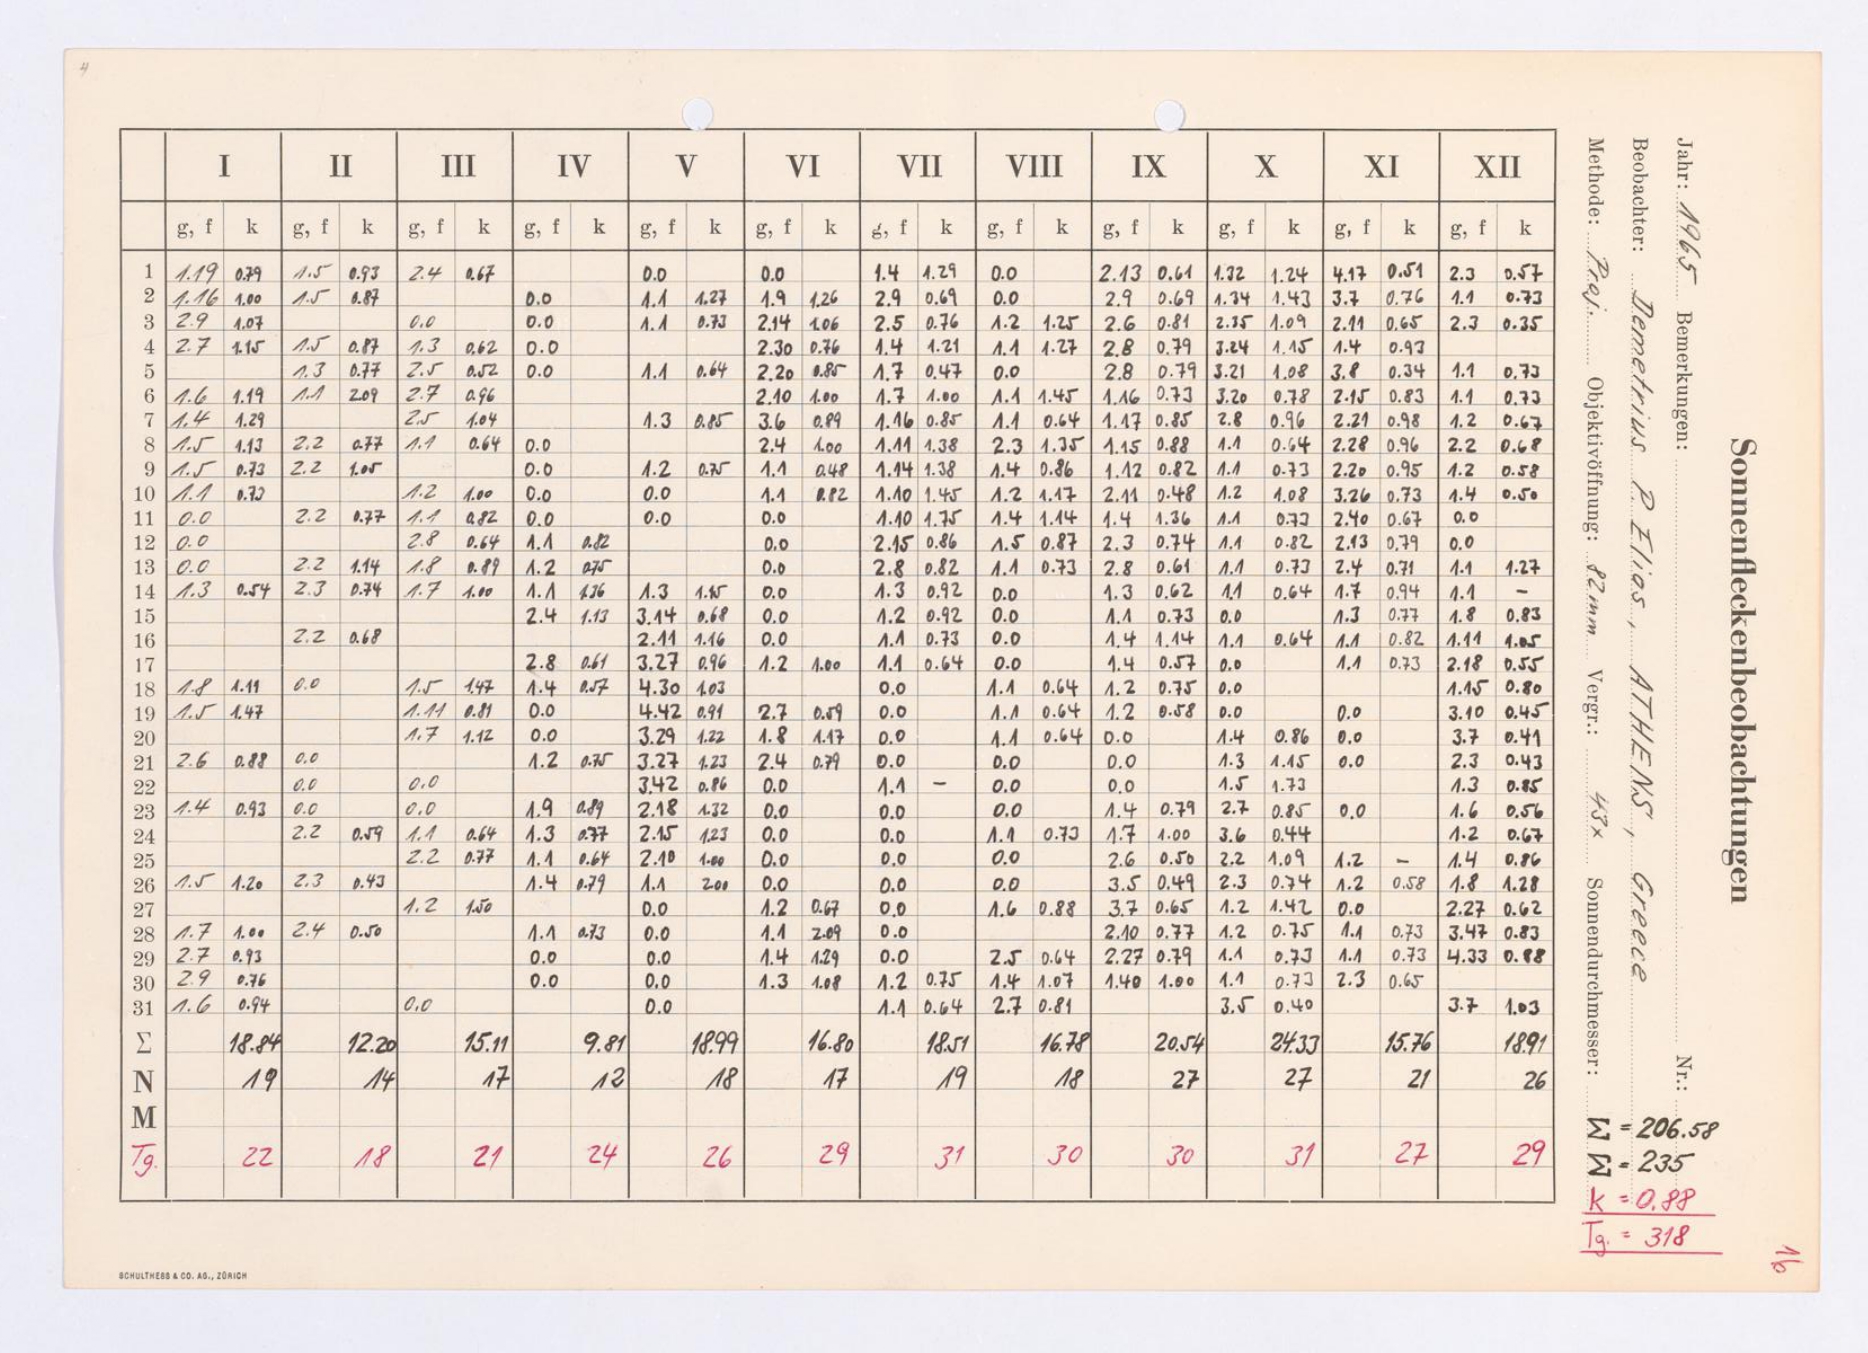 4
I II III IV V VI VII VIII IX X XI XII
g, f k g, f k g, f k g, f k g, f k g, f k g, f k g, f k g, f k g, f k g, f k g, f k
1 1.19 0.79 1.5 0.93 2.4 0.67 0.0 0.0 1.4 1.29 0.0 2.13 0.61 1.32 1.24 4.17 0.51 2.3 0.57
2 1.16 1.00 1.5 0.87 0.0 1.1 1.27 1.9 1.26 2.9 0.69 0.0 2.9 0.69 1.34 1.43 3.7 0.76 1.1 0.73
3 2.9 1.07 0.0 0.0 1.1 0.73 2.14 1.06 2.5 0.76 1.2 1.25 2.6 0.81 2.35 1.09 2.11 0.65 2.3 0.35
4 2.7 1.15 1.5 0.87 1.3 0.62 0.0 2.30 0.76 1.4 1.21 1.1 1.27 2.8 0.79 3.24 1.15 1.4 0.93
5 1.3 0.77 2.5 0.52 0.0 1.1 0.64 2.20 0.85 1.7 0.47 0.0 2.8 0.79 3.21 1.08 3.8 0.34 1.1 0.73
6 1.6 1.19 1.1 2.09 2.7 0.96 2.10 1.00 1.7 1.00 1.1 1.45 1.16 0.73 3.20 0.78 2.15 0.83 1.1 0.73
7 1.4 1.29 2.5 1.04 1.3 0.85 3.6 0.89 1.16 0.85 1.1 0.64 1.17 0.85 2.8 0.96 2.21 0.98 1.2 0.67
8 1.5 1.13 2.2 0.77 1.1 0.64 0.0 2.4 1.00 1.11 1.38 2.3 1.35 1.15 0.88 1.1 0.64 2.28 0.96 2.2 0.68
9 1.5 0.73 2.2 1.05 0.0 1.2 0.75 1.1 0.48 1.14 1.38 1.4 0.86 1.12 0.82 1.1 0.73 2.20 0.95 1.2 0.58
10 1.1 0.73 1.2 1.00 0.0 0.0 1.1 0.82 1.10 1.45 1.2 1.17 2.11 0.48 1.2 1.08 3.26 0.73 1.4 0.50
11 0.0 2.2 0.77 1.1 0.82 0.0 0.0 0.0 1.10 1.75 1.4 1.14 1.4 1.36 1.1 0.73 2.40 0.67 0.0
12 0.0 2.8 0.64 1.1 0.82 0.0 2.15 0.86 1.5 0.87 2.3 0.74 1.1 0.82 2.13 0.79 0.0
13 0.0 2.2 1.14 1.8 0.89 1.2 0.75 0.0 2.8 0.82 1.1 0.73 2.8 0.61 1.1 0.73 2.4 0.71 1.1 1.27
14 1.3 0.54 2.3 0.74 1.7 1.00 1.1 1.36 1.3 1.15 0.0 1.3 0.92 0.0 1.3 0.62 1.1 0.64 1.7 0.94 1.1 –
15 2.4 1.13 3.14 0.68 0.0 1.2 0.92 0.0 1.1 0.73 0.0 1.3 0.77 1.8 0.83
16 2.2 0.68 2.11 1.16 0.0 1.1 0.73 0.0 1.4 1.14 1.1 0.64 1.1 0.82 1.11 1.05
17 2.8 0.61 3.27 0.96 1.2 1.00 1.1 0.64 0.0 1.4 0.57 0.0 1.1 0.73 2.18 0.55
18 1.8 1.11 0.0 1.5 1.47 1.4 0.57 4.30 1.03 0.0 1.1 0.64 1.2 0.75 0.0 1.15 0.80
19 1.5 1.47 1.11 0.81 0.0 4.42 0.91 2.7 0.59 0.0 1.1 0.64 1.2 0.58 0.0 0.0 3.10 0.45
20 1.7 1.12 0.0 3.29 1.22 1.8 1.17 0.0 1.1 0.64 0.0 1.4 0.86 0.0 3.7 0.41
21 2.6 0.88 0.0 1.2 0.75 3.27 1.23 2.4 0.79 0.0 0.0 0.0 1.3 1.15 0.0 2.3 0.43
22 0.0 0.0 3.42 0.86 0.0 1.1 – 0.0 0.0 1.5 1.73 1.3 0.85
23 1.4 0.93 0.0 0.0 1.9 0.89 2.18 1.32 0.0 0.0 0.0 1.4 0.79 2.7 0.85 0.0 1.6 0.56
24 2.2 0.59 1.1 0.64 1.3 0.77 2.15 1.23 0.0 0.0 1.1 0.73 1.7 1.00 3.6 0.44 1.2 0.67
25 2.2 0.77 1.1 0.64 2.10 1.00 0.0 0.0 0.0 2.6 0.50 2.2 1.09 1.2 – 1.4 0.86
26 1.5 1.20 2.3 0.43 1.4 0.79 1.1 2.00 0.0 0.0 0.0 3.5 0.49 2.3 0.74 1.2 0.58 1.8 1.28
27 1.2 1.50 0.0 1.2 0.67 0.0 1.6 0.88 3.7 0.65 1.2 1.42 0.0 2.27 0.62
28 1.7 1.00 2.4 0.50 1.1 0.73 0.0 1.1 2.09 0.0 2.10 0.77 1.2 0.75 1.1 0.73 3.47 0.83
29 2.7 0.93 0.0 0.0 1.4 1.29 0.0 2.5 0.64 2.27 0.79 1.1 0.73 1.1 0.73 4.33 0.88
30 2.9 0.76 0.0 0.0 1.3 1.08 1.2 0.75 1.4 1.07 1.40 1.00 1.1 0.73 2.3 0.65
31 1.6 0.94 0.0 0.0 1.1 0.64 2.7 0.81 3.5 0.40 3.7 1.03
Σ 18.84 12.20 15.11 9.81 18.99 16.80 18.51 16.78 20.54 24.33 15.76 18.91
N 19 14 17 12 18 17 19 18 27 27 21 26
M
Tg. 22 18 21 24 26 29 31 30 30 31 27 29
SCHULTHESS & CO. AG., ZÜRICH
Sonnenfleckenbeobachtungen
Jahr: 1965 Bemerkungen: Nr.:
Beobachter: Demetrius P. Elias, ATHENS, Greece
Methode: Proj. Objektivöffnung: 82mm Vergr.: 43x Sonnendurchmesser:
Σ = 206.58
Σ = 235
k = 0.88
Tg. = 318
16